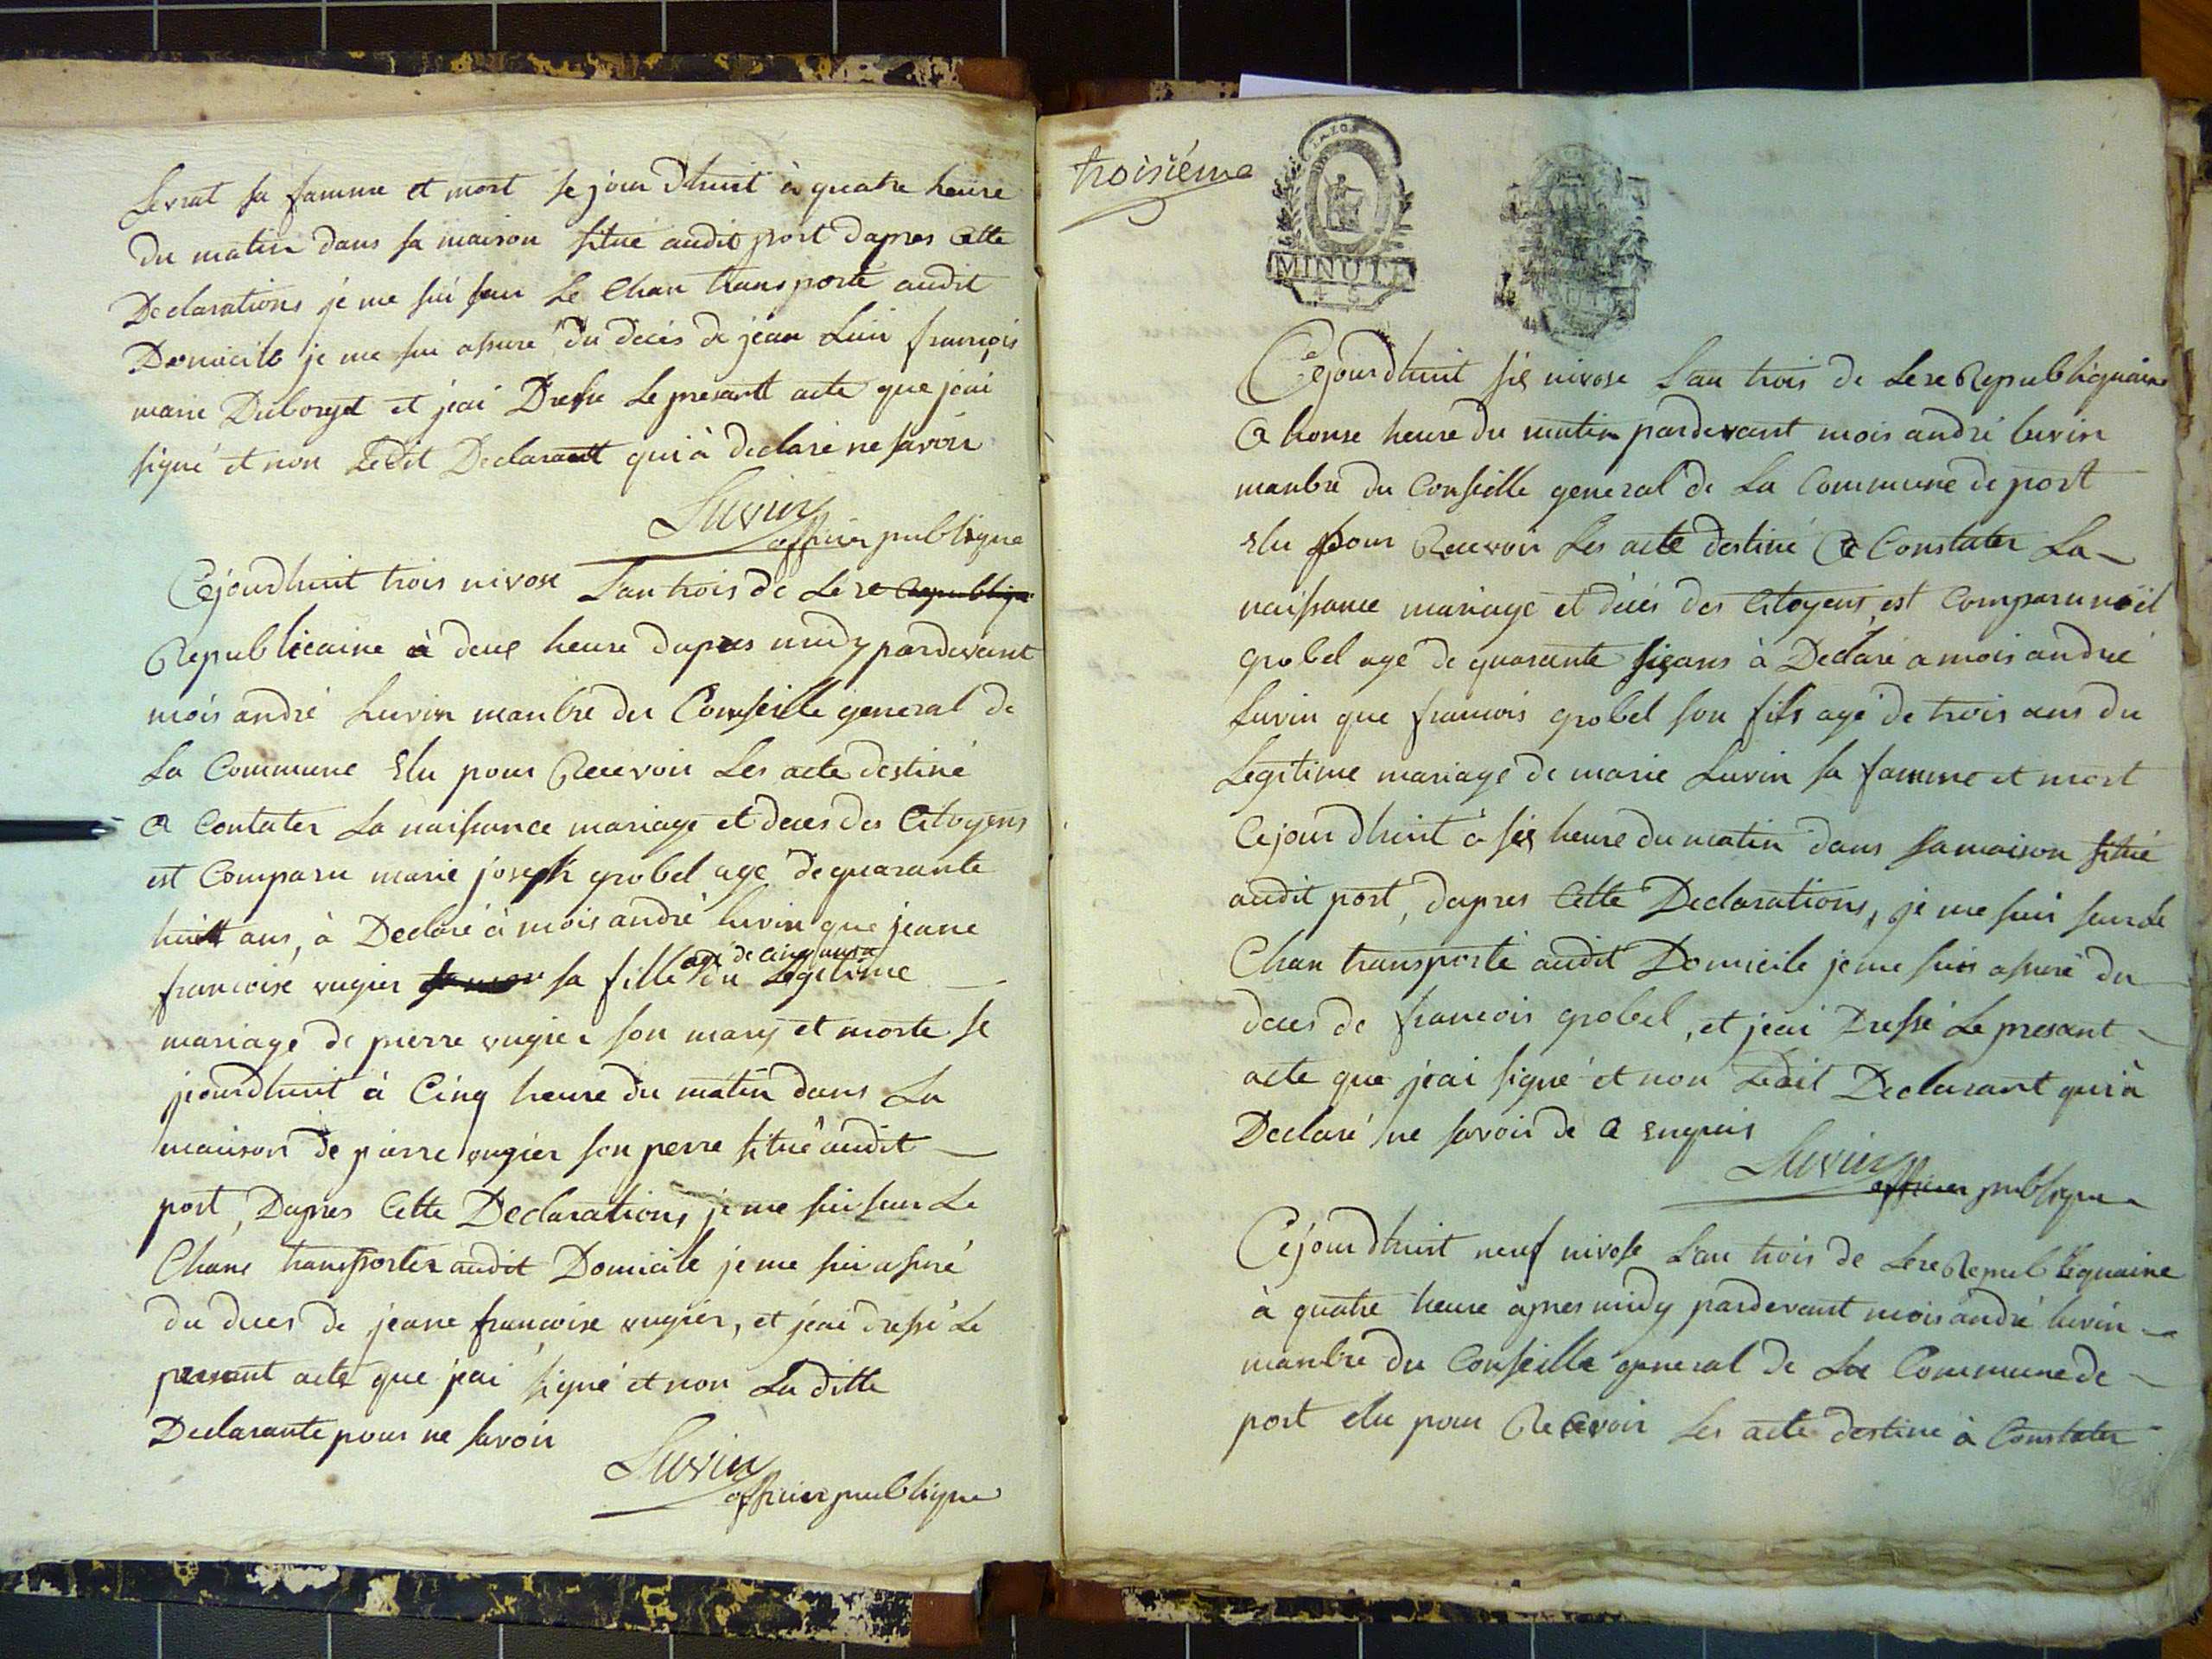 Levrat sa famme et mort se jour dhuit à quatre heure
du matin dans sa maison situé audit port dapres Cette
Declarations je me sui seur Le Chan transporté audit
Domicile je me sui assuré du décés de jean Luis françois
marie Duborget et jeai Dressé Le presantt acte que jeai
signé et non Ledit Declarantt qui à declaré ne savoir
Luvin
officier publique
Cejourdhuit trois nivose Lan trois de Lere Republique
Republicaine à deux heure dapres midy pardevant
mois andré Luvin manbre du Conseille general de
La Commune Elu pour Recevoir Les acte destiné
a Contater La naissance mariage et deces des Citoyens
est Comparu marie joseph grobel age de quarante
huitt ans, à Declaré à mois andré luvin que jeane
age de cinq
francoise rugier sa fille du Legitime
mariage de pierre rugier son mary et morte se
jourdhuit à Cinq heure du matin dans La
maison de pierre rugier son perre situé audit
port, Dapres Cette Declarations je me sui seur Le
Chans transporter audit Domicile je me sui assuré
du deces de jeane francoise rugier, et jeai dressé Le
presant acte que jeai signé et non La ditte
Declarante pour ne savoir
Luvin
officier publique
troisiéme
MINUTE
Cejourdhuit six nivose Lan trois de Lere Republiquaine
a honse heure du matin pardevant mois andré luvin
manbre du Conseille general de La Commune de port
Elu pour Recevoir Les acte destiné a Constater La
naissance mariage et décés des Citoyens, est Comparu noël
grobel agé de quarante sixans à Declaré a mois andré
Luvin que francois grobel son fils agé de trois ans du
Legitime mariage de marie Luvin sa famme et mort
Cejour dhuit à six heure du matin dans sa maison situé
audit port, dapres Cette Declarations, je me sui seur Le
Chan transporté audit Domicile je me suis assuré du
deces de francois grobel, et jeai Dressé Le presant
acte que jeai signé et non Ledit Declarant qui à
Declaré ne savoir de a enquis
Luvin
officier publique
Cejourdhuit neuf nivose Lan trois de Lere Republiquaine
à quatre heure apres midy pardevant mois andré luvin
manbre du Conseille general de La Commune de
port elu pour Recevoir Les acte destiné à Constater